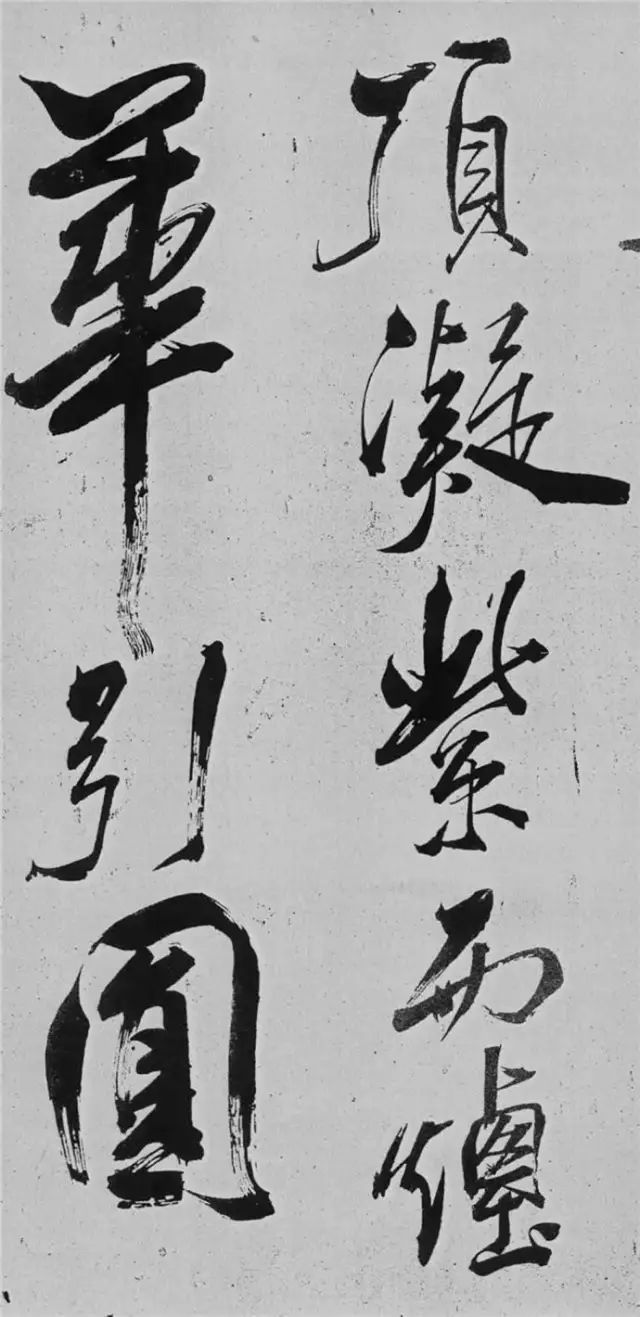 頂凝紫而煙
華引圓